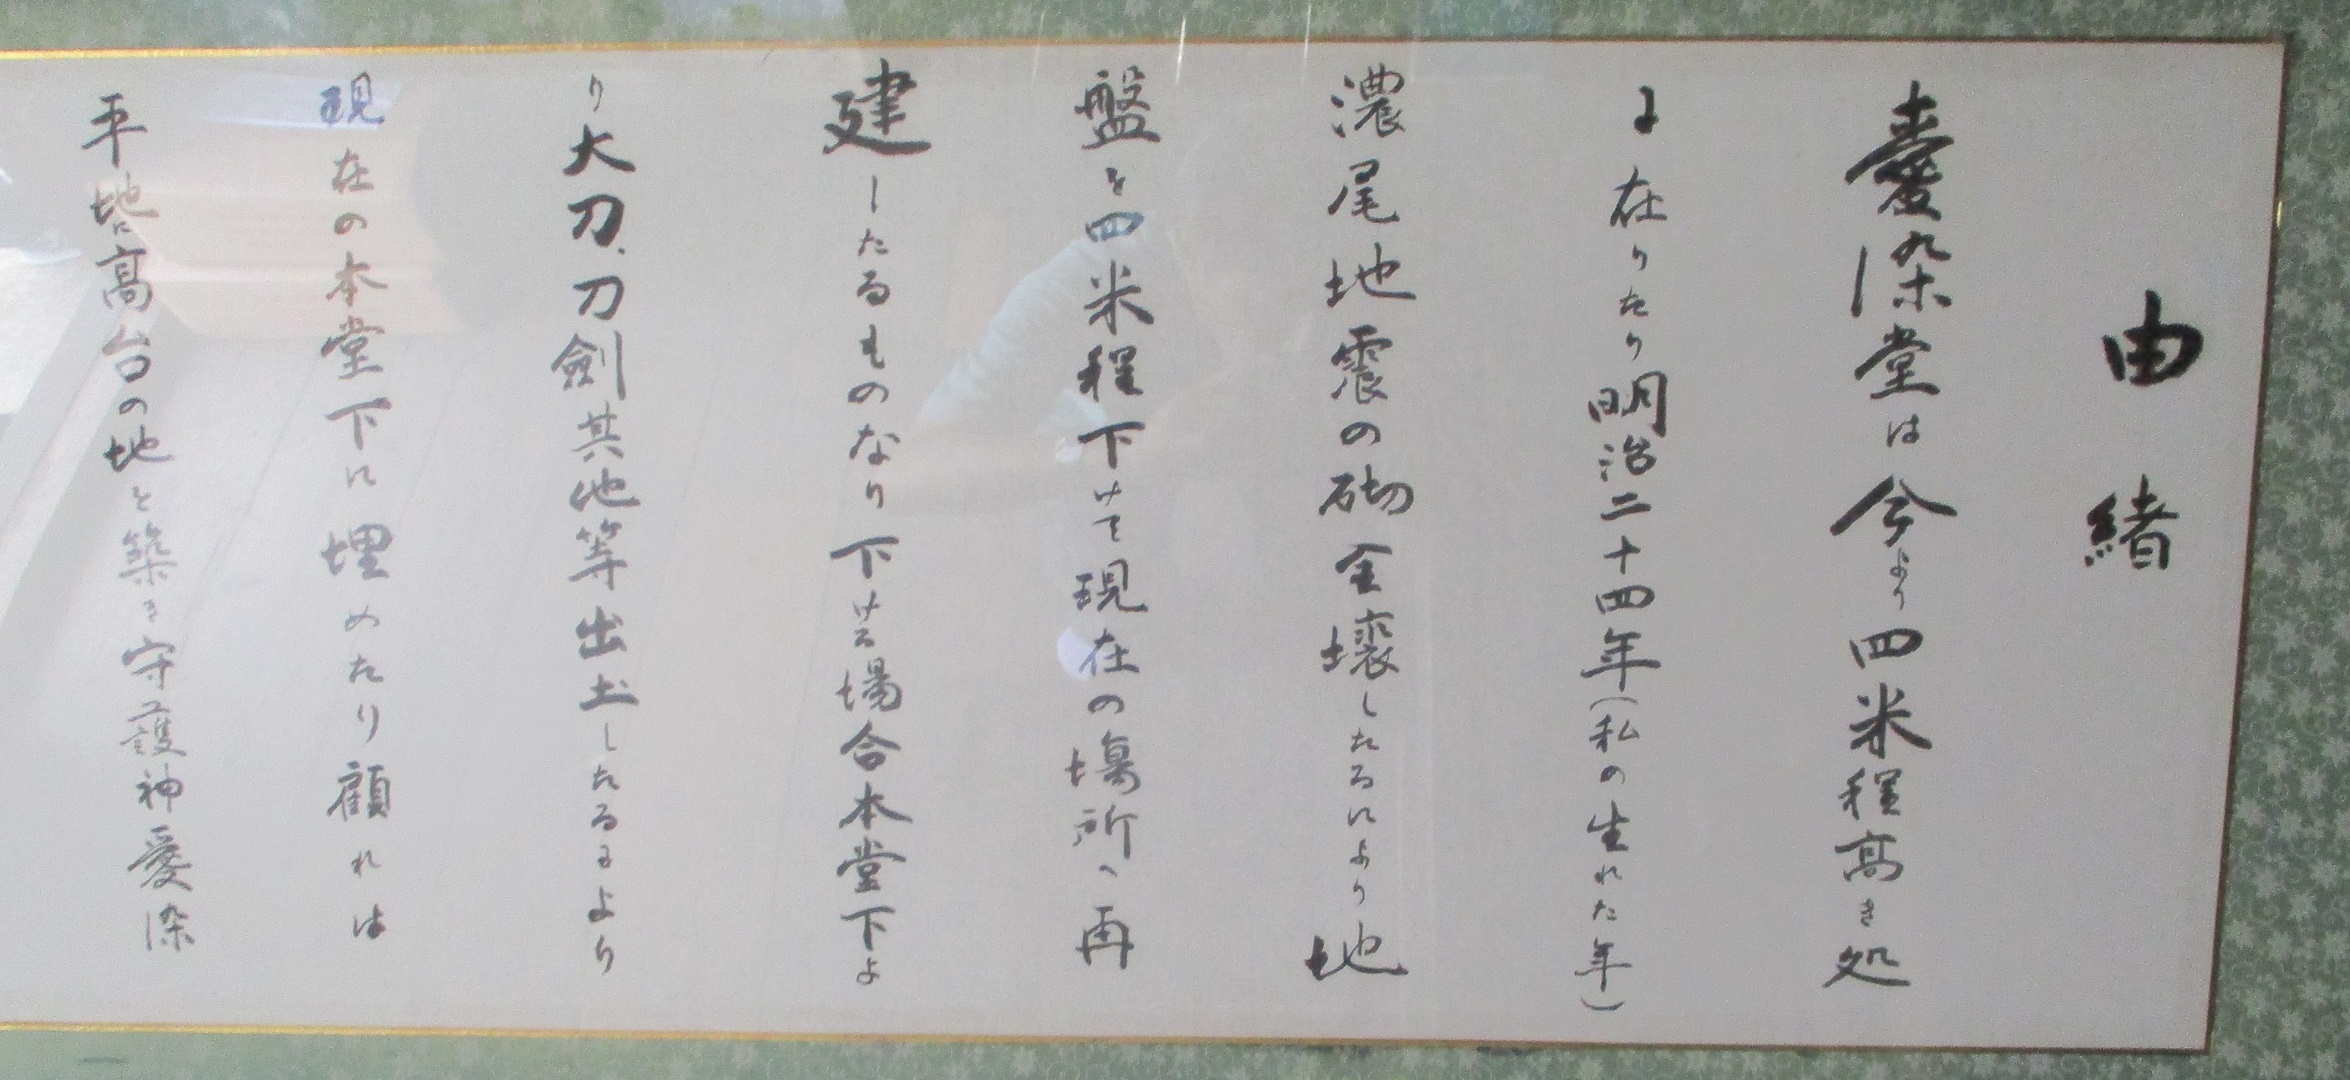 由緒
愛染堂は今より四米程高き処
に在りたり明治二十四年(私の生れた年)
濃尾地震の砌全壊したるにより地
盤を四米程下げて現在の場所へ再
建したるものなり下げる場合本堂下よ
り大刀、刀剣其他等出土したるにより
現在の本堂下に埋めたり顧れは
平地に高台の地を築き守護神愛染